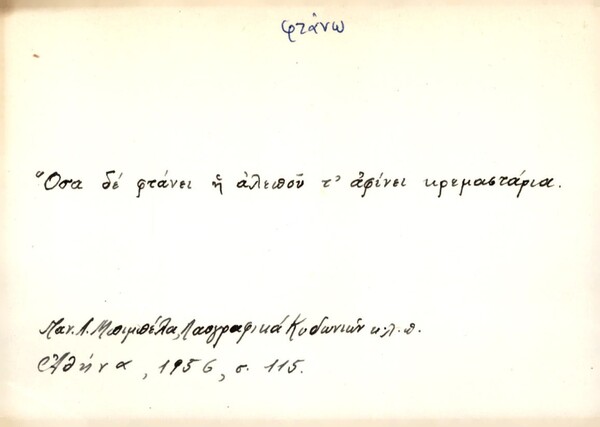 φτάνω
Ὅσα δέ φτάνει ἡ ἀλεποῦ τ' ἀφίνει κρεμαστάρια.
Παν. Λ. Μπιμπέλα, Λαογραφικά Κυδωνιῶν κ.λ.π.
Ἀθήνα, 1956, σ. 115.